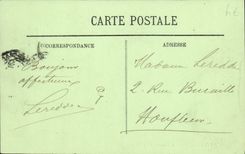 CARTE POSTALE
CORRESPONDANCE
ADRESSE
Bonjour
affectueux
Madame Leredde
2 Rue Bucaille
Honfleur